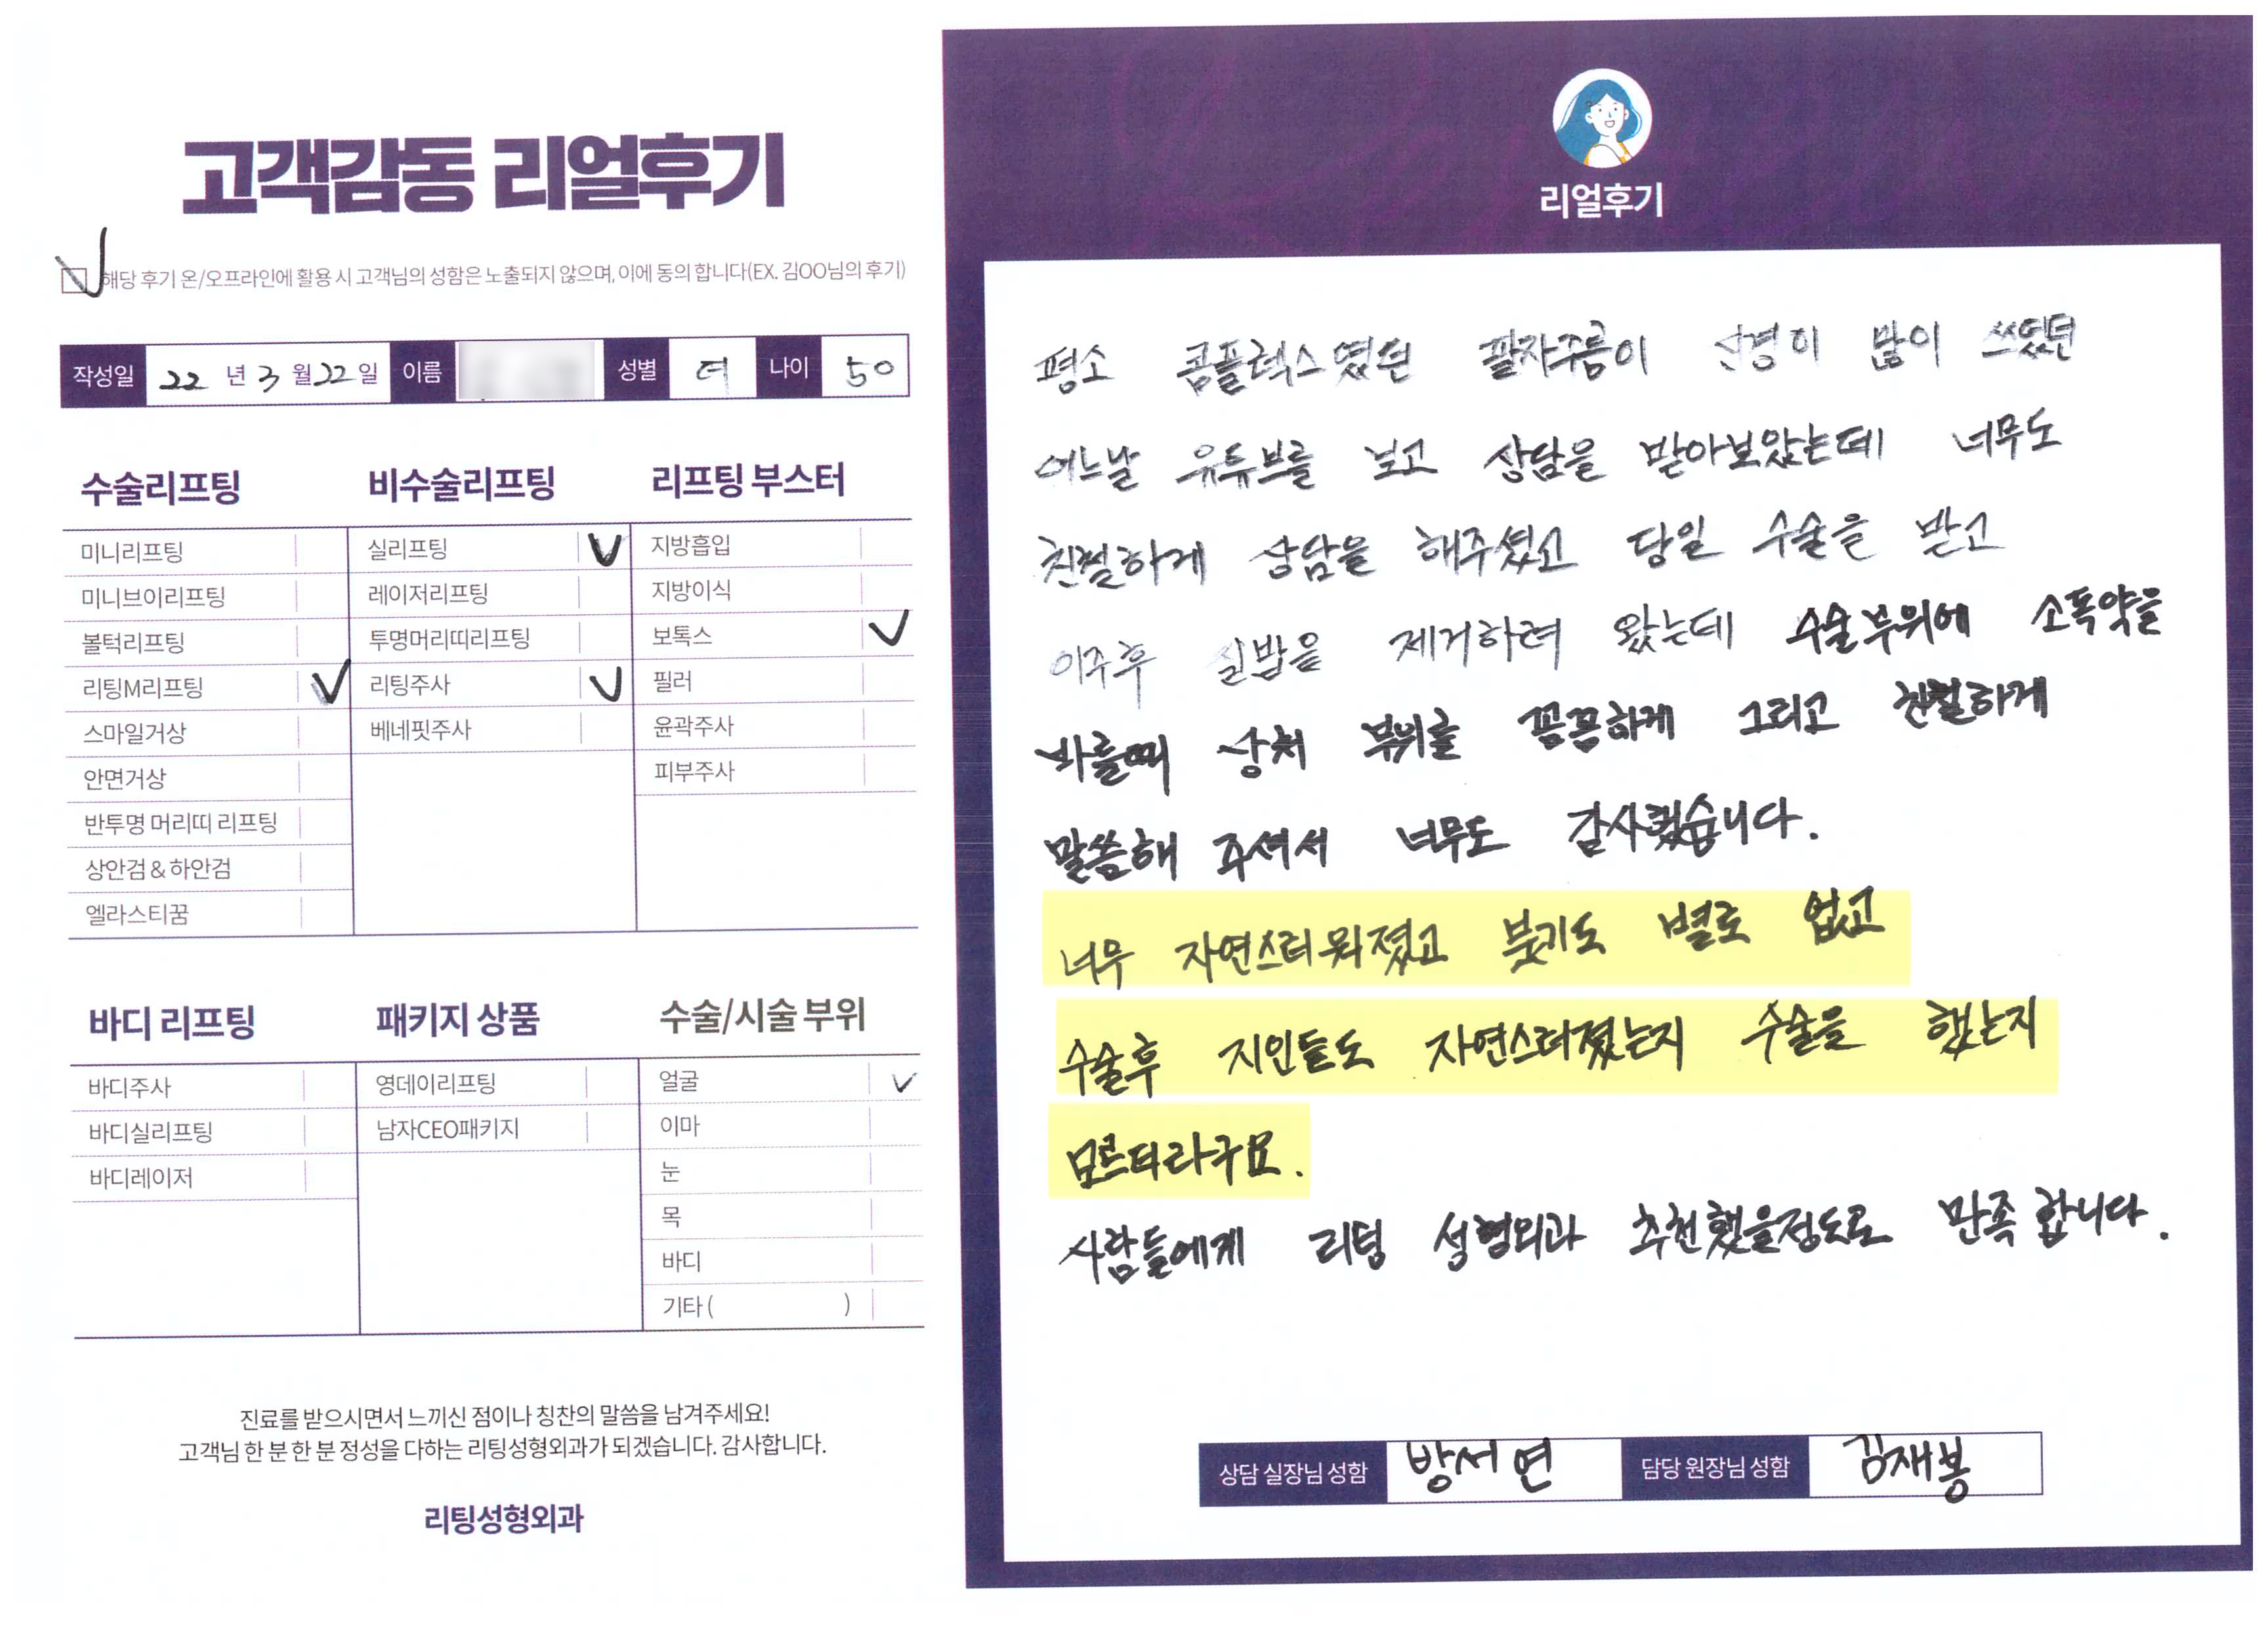 고객감동 리얼후기
해당 후기 온/오프라인에 활용 시 고객님의 성함은 노출되지 않으며, 이에 동의 합니다(EX. 김OO님의 후기)
작성일 22 년 3 월 22 일 이름 성별 여 나이 50
수술리프팅
미니리프팅
미니브이리프팅
볼턱리프팅
리팅M리프팅
스마일거상
안면거상
반투명 머리띠 리프팅
상안검 & 하안검
엘라스티꿈
비수술리프팅
실리프팅
레이저리프팅
투명머리띠리프팅
리팅주사
베네핏주사
리프팅 부스터
지방흡입
지방이식
보톡스
필러
윤곽주사
피부주사
바디 리프팅
바디주사
바디실리프팅
바디레이저
패키지 상품
영데이리프팅
남자CEO패키지
수술/시술 부위
얼굴
이마
눈
목
바디
기타 ( )
진료를 받으시면서 느끼신 점이나 칭찬의 말씀을 남겨주세요!
고객님 한 분 한 분 정성을 다하는 리팅성형외과가 되겠습니다. 감사합니다.
리팅성형외과
리얼후기
평소 콤플렉스였던 팔자주름이 신경이 많이 쓰였던
어느날 유튜브를 보고 상담을 받아보았는데 너무도
친절하게 상담을 해주셨고 당일 수술을 받고
이주후 실밥을 제거하려 왔는데 수술부위에 소독약을
바를때 상처 부위를 꼼꼼하게 그리고 친절하게
말씀해 주셔서 너무도 감사했습니다.
너무 자연스러워졌고 붓기도 별로 없고
수술후 지인들도 자연스러졌는지 수술을 했는지
모르더라구요.
사람들에게 리팅 성형외과 추천했을정도로 만족합니다.
상담 실장님 성함 방서연 담당 원장님 성함 김재봉